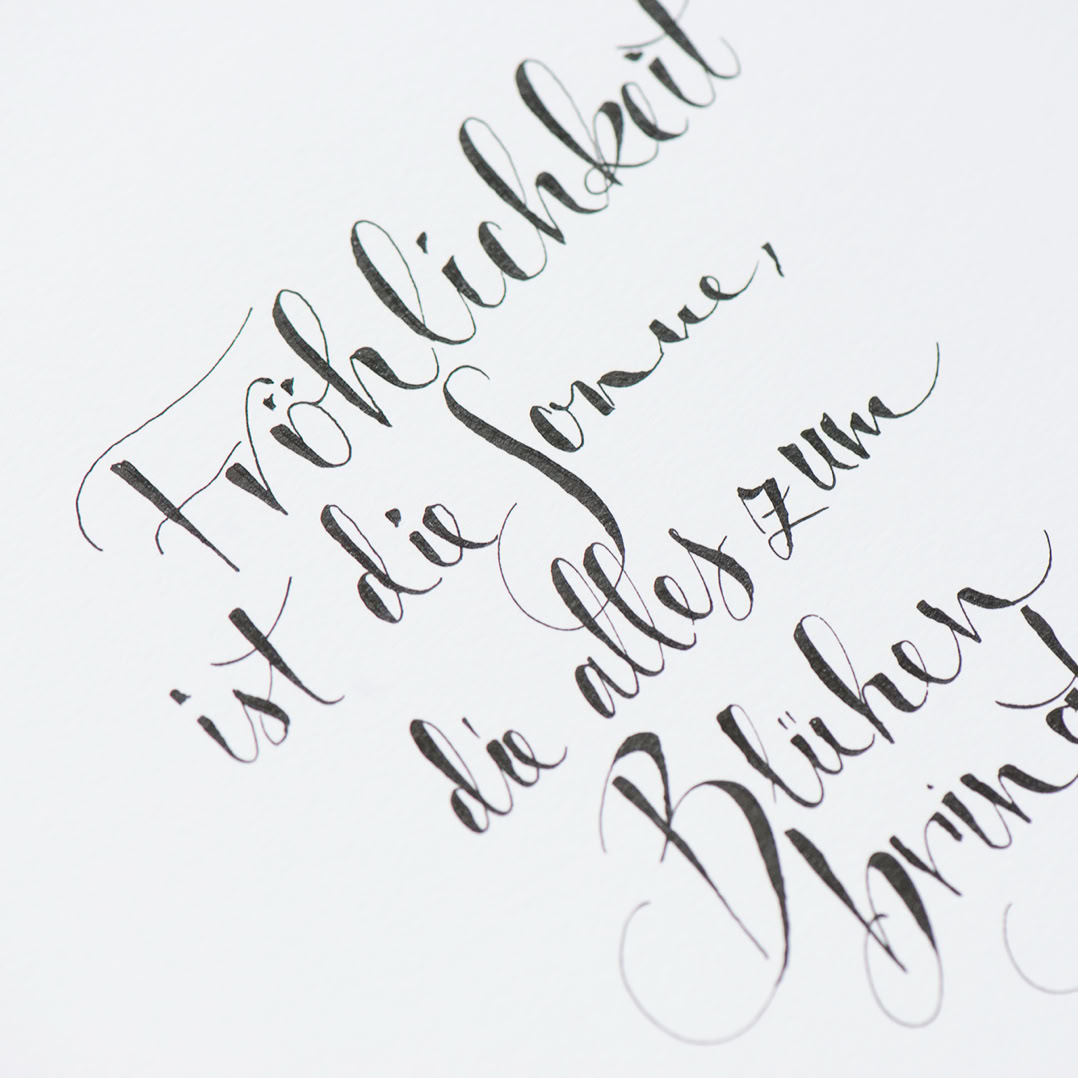 Fröhlichkeit
ist die Sonne,
die alles zum
Blühen
bringt